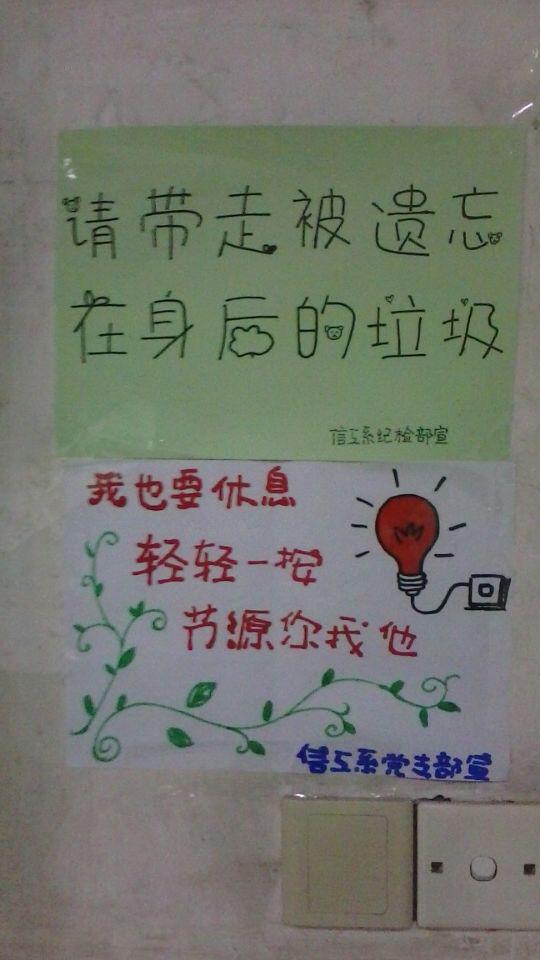 请带走被遗忘
在身后的垃圾
信工系纪检部宣
我也要休息
轻轻一按
节源你我他
信工系党支部宣